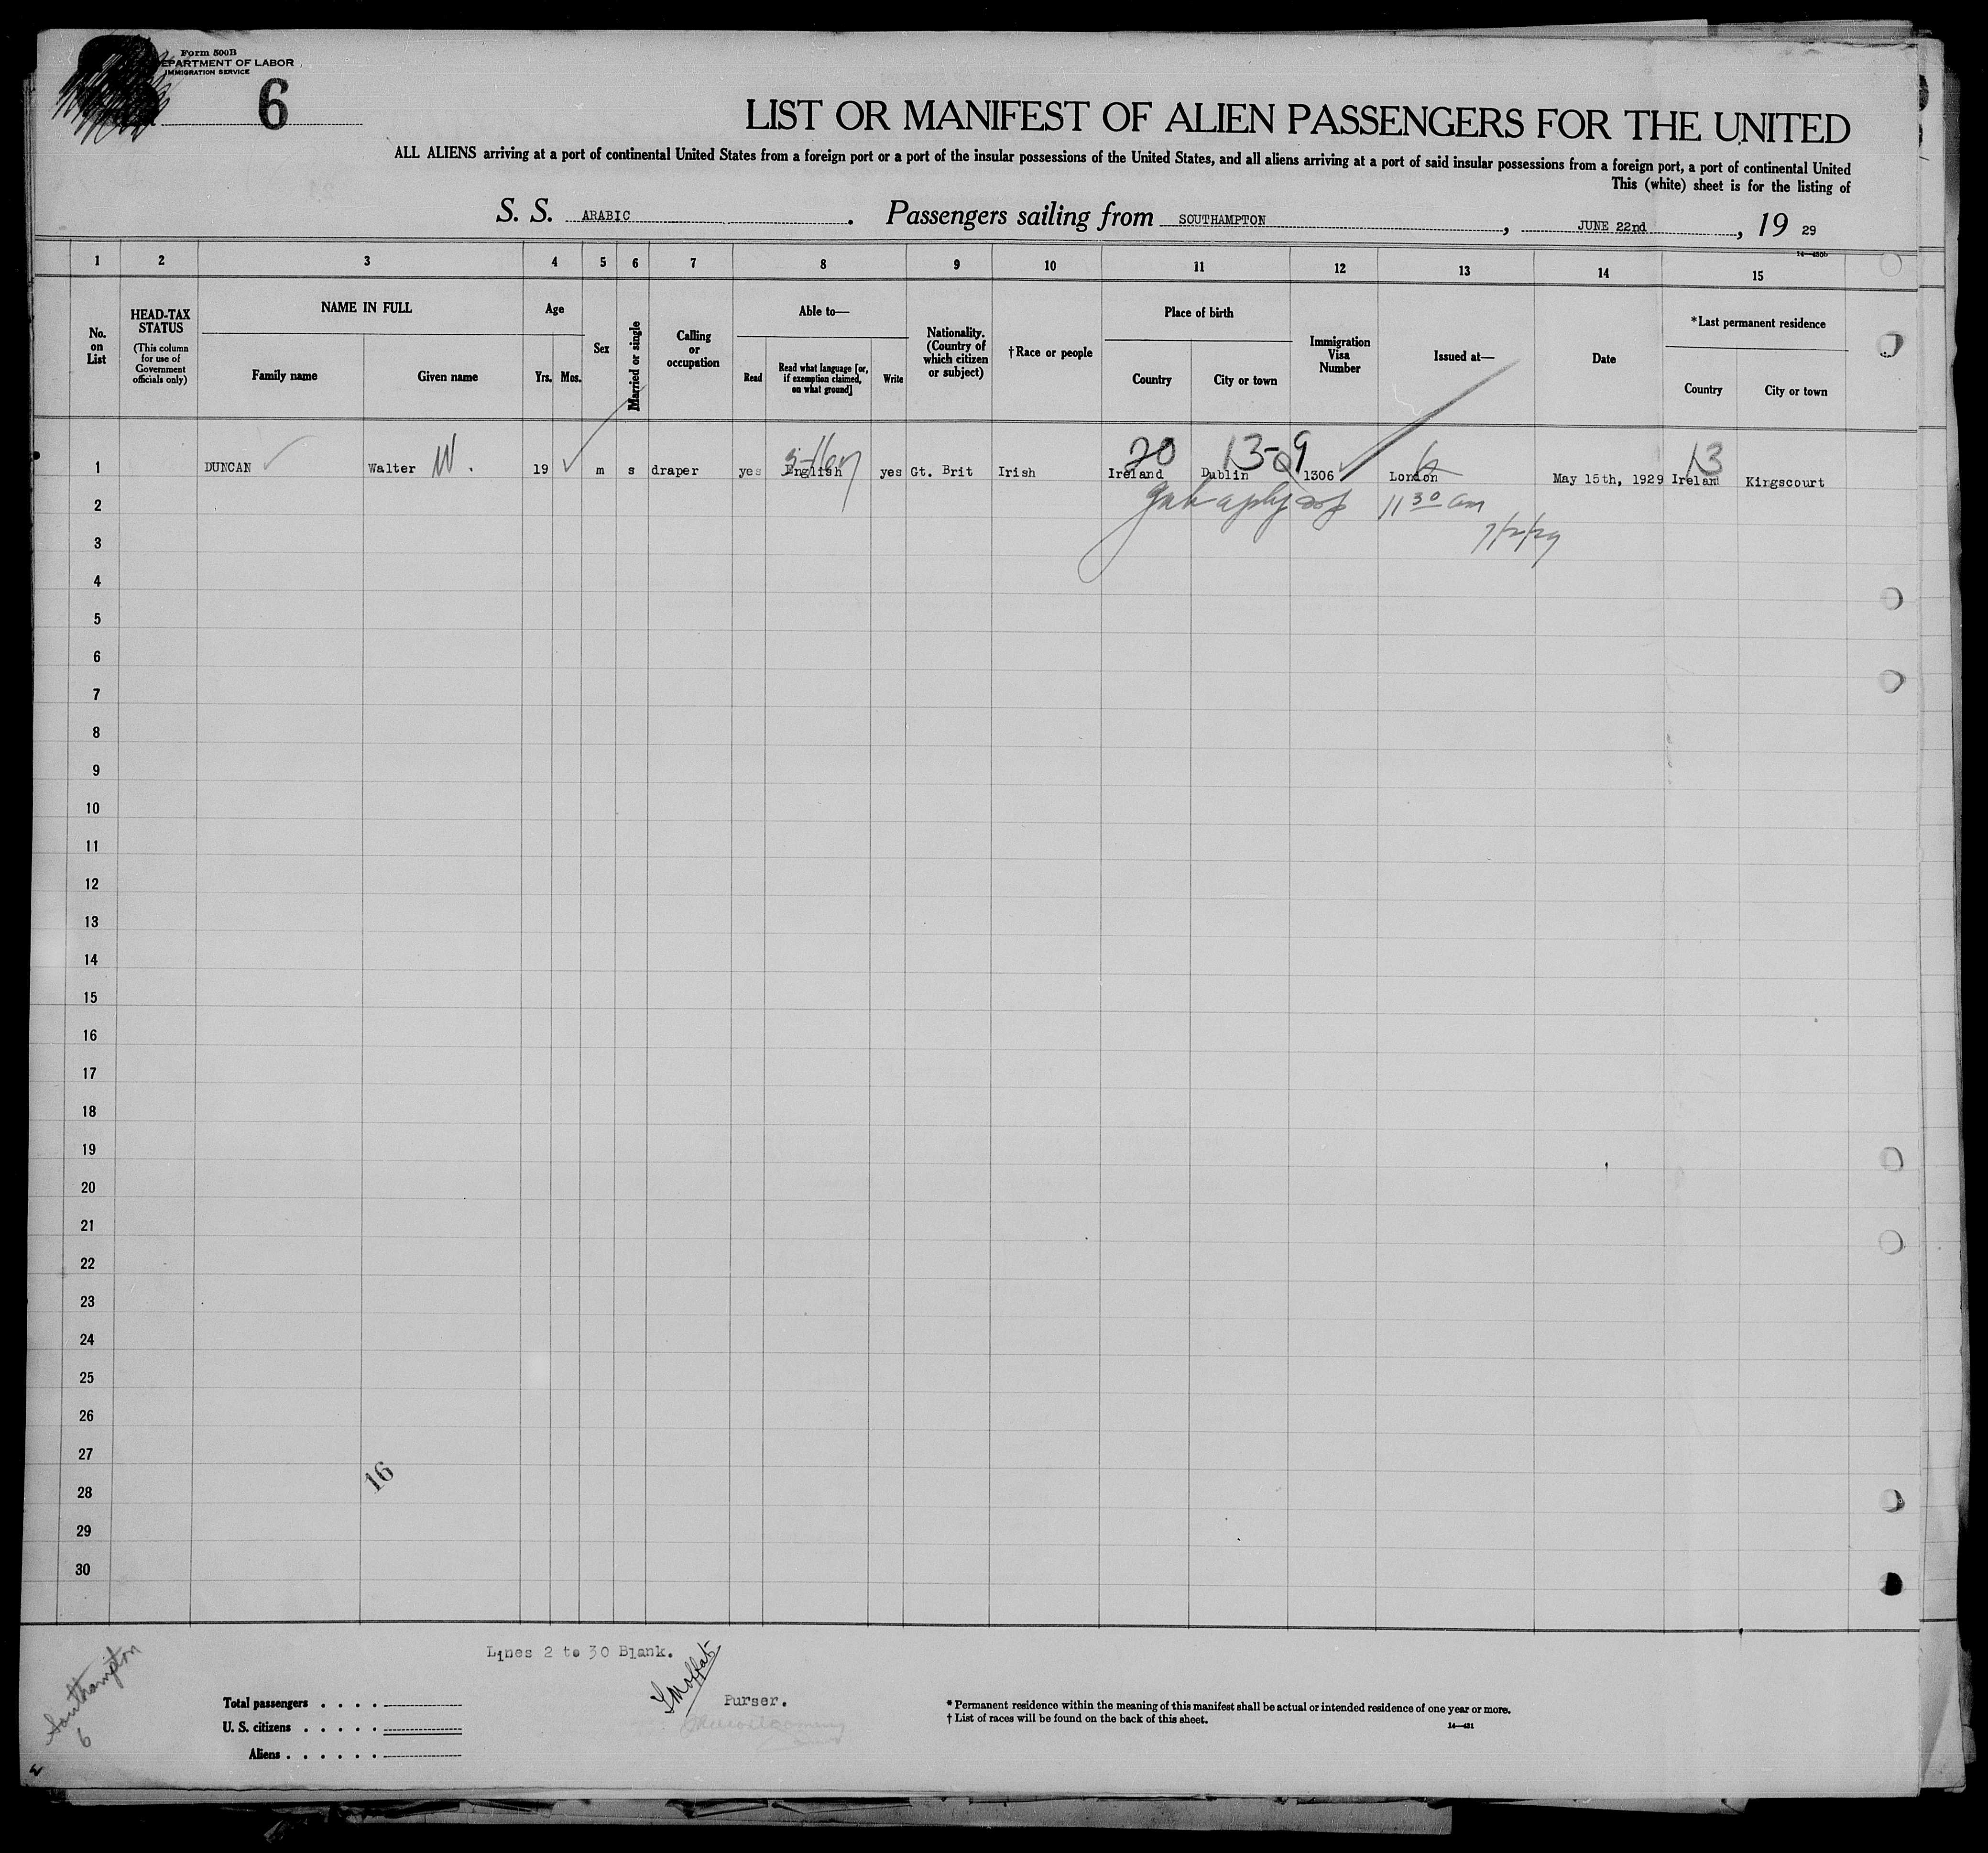 Form 500B
DEPARTMENT OF LABOR
IMMIGRATION SERVICE
6
LIST OR MANIFEST OF ALIEN PASSENGERS FOR THE UNITED
ALL ALIENS arriving at a port of continental United States from a foreign port or a port of the insular possessions of the United States, and all aliens arriving at a port of said insular possessions from a foreign port, a port of continental United
This (white) sheet is for the listing of
S. S. ARABIC. Passengers sailing from SOUTHAMPTON, JUNE 22nd, 19 29
14—430b
1 2 3 4 5 6 7 8 9 10 11 12 13 14 15
No. on List
HEAD-TAX STATUS (This column for use of Government officials only)
NAME IN FULL
Family name
Given name
Age
Yrs. Mos.
Sex
Married or single
Calling or occupation
Able to—
Read
Read what language [or, if exemption claimed, on what ground]
Write
Nationality. (Country of which citizen or subject)
†Race or people
Place of birth
Country
City or town
Immigration Visa Number
Issued at—
Date
*Last permanent residence
Country
City or town
20 13-9 13
1 DUNCAN Walter W. 19 m s draper yes English yes Gt. Brit Irish Ireland Dublin 1306 London May 15th, 1929 Ireland Kingscourt
2 11 30 am
3 7/2/29
4
5
6
7
8
9
10
11
12
13
14
15
16
17
18
19
20
21
22
23
24
25
26
27
16
28
29
30
Lines 2 to 30 Blank.
Southampton
6
Moffat
Purser.
Total passengers . . . .
U. S. citizens . . . . .
Aliens . . . . . .
* Permanent residence within the meaning of this manifest shall be actual or intended residence of one year or more.
† List of races will be found on the back of this sheet.
14—431